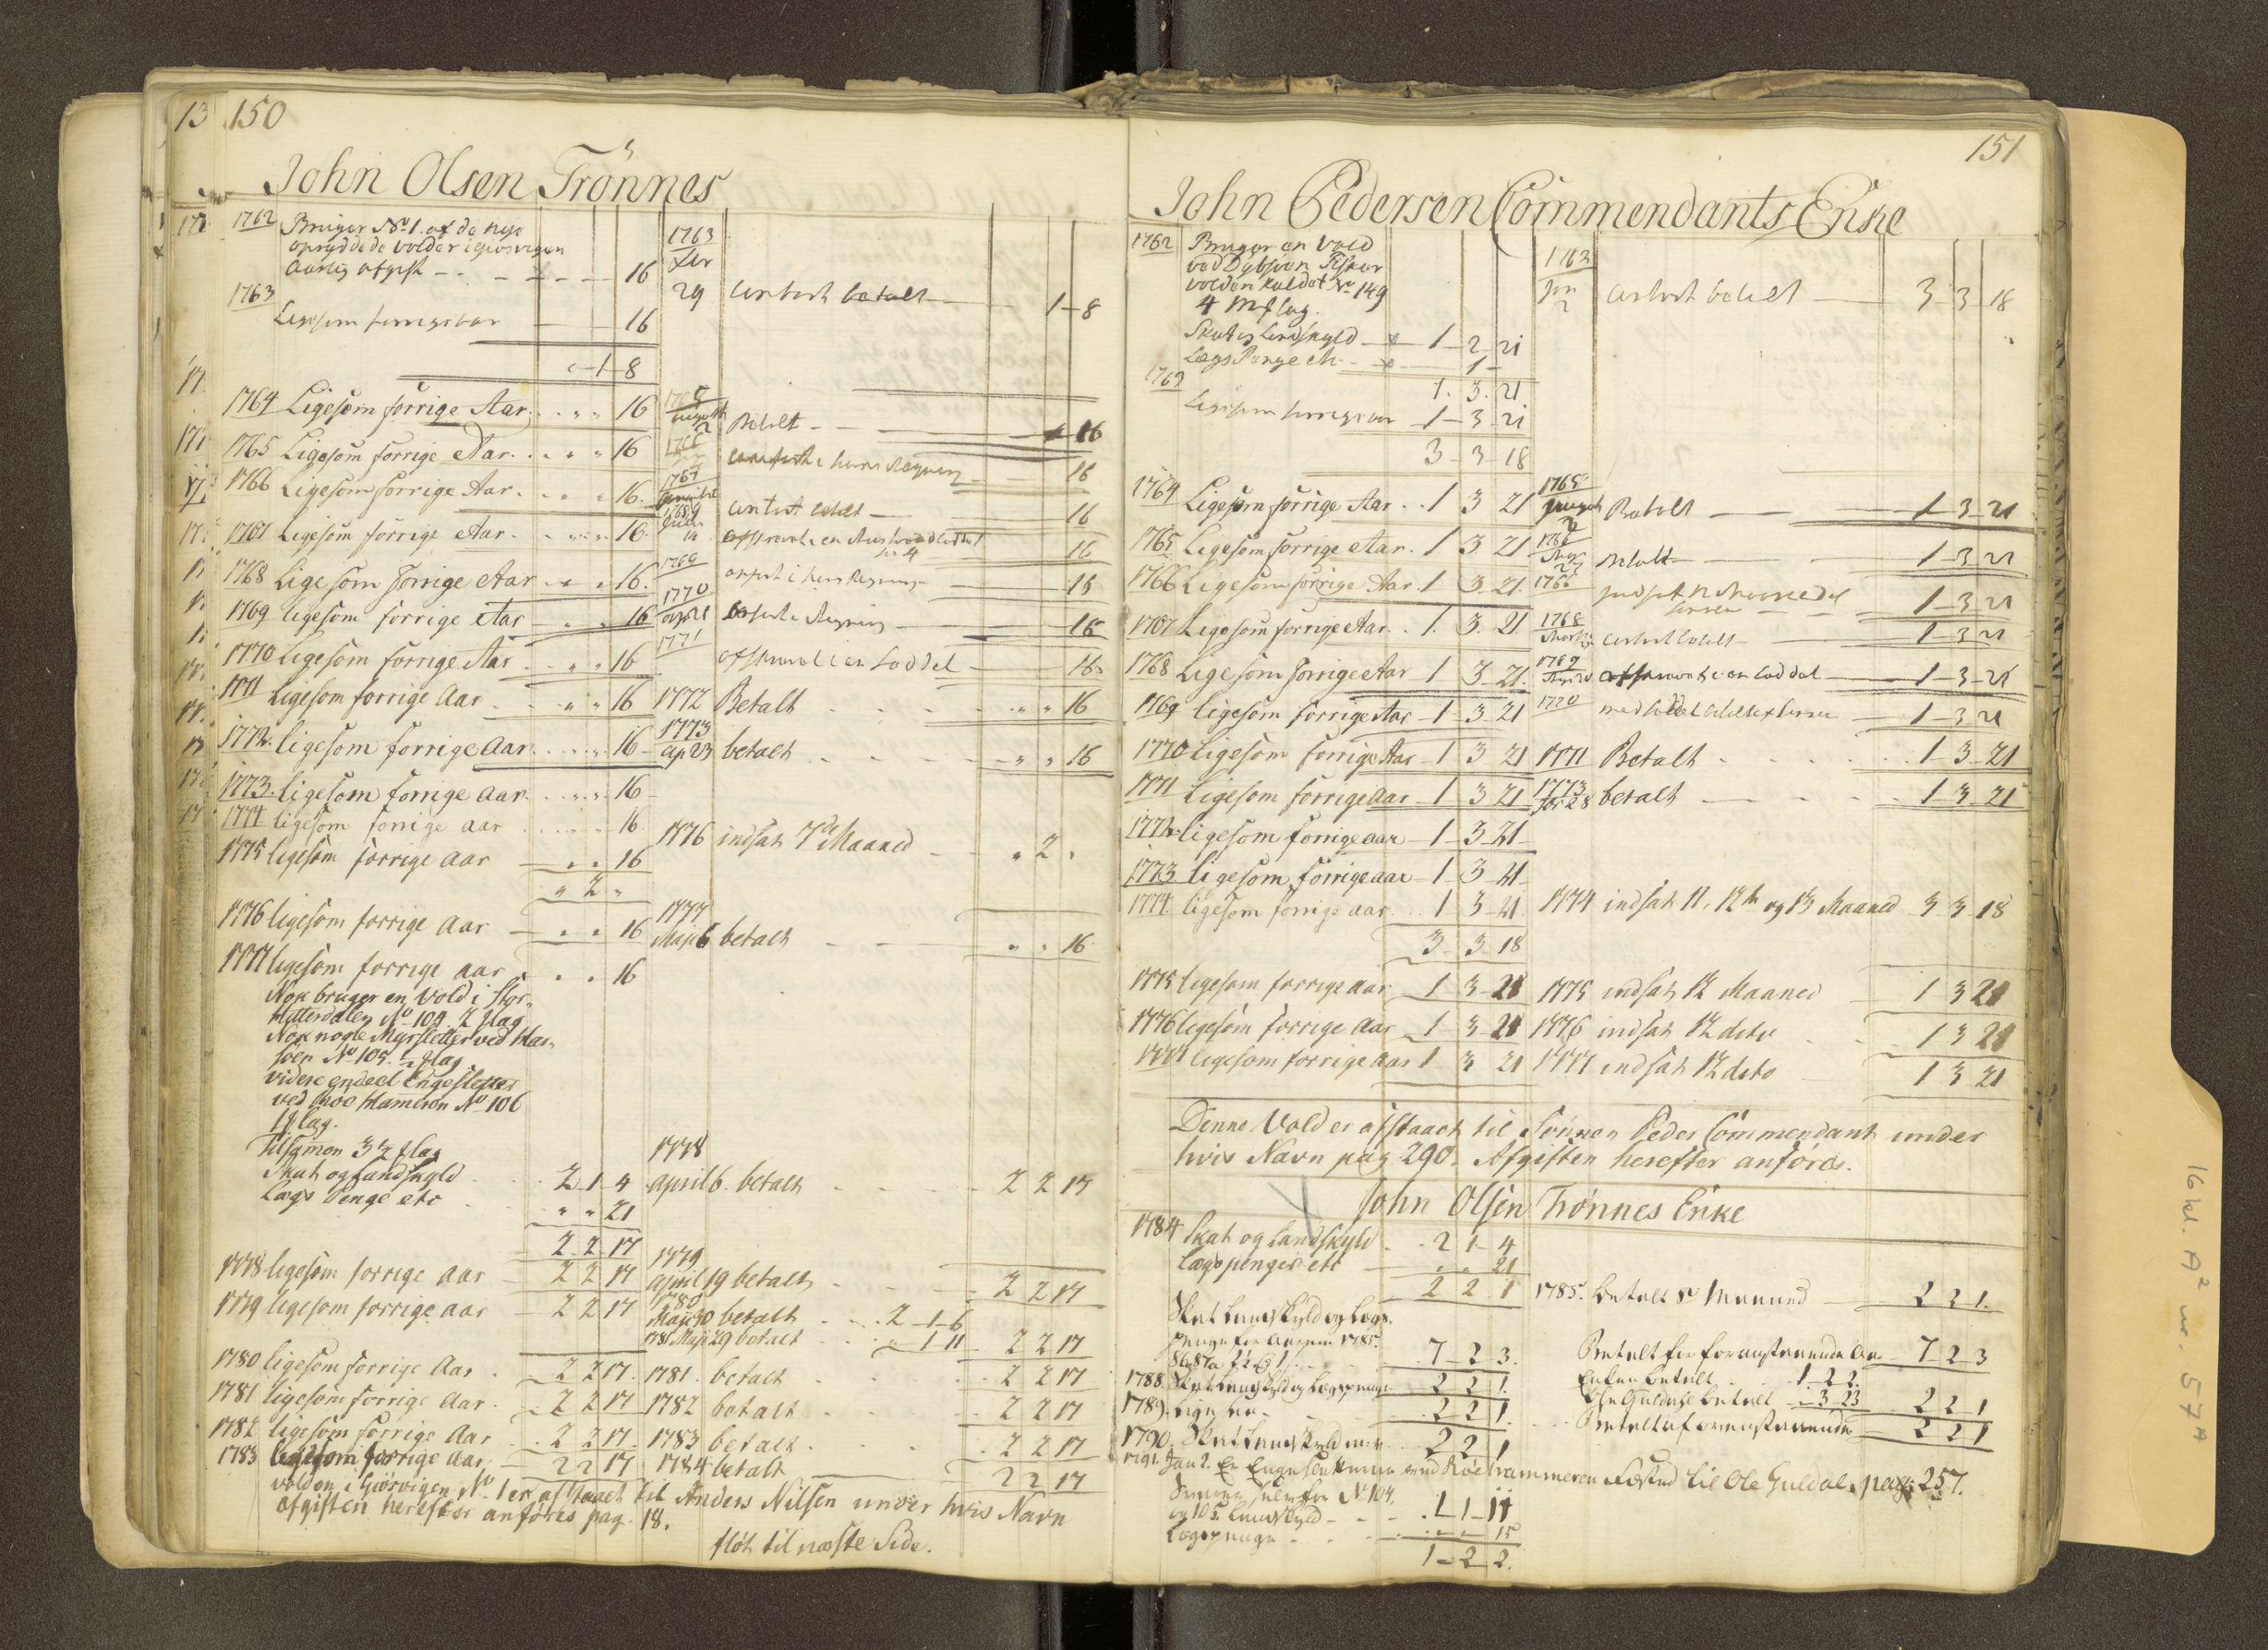 150
John Olsen Trönnes
1762 Bruger No 1. af de nye
opryddede volder i giörvigen
Aarlig afgift 16
1763
Ligesom forrige aar 16
1 8
1764 Ligesom forrige Aar 16
1765 Ligesom forrige Aar 16
1766 Ligesom forrige Aar 16
1767 Ligesom forrige Aar 16
1768 Ligesom forrige Aar 16
1769 ligesom forrige Aar 16
1770 ligesom forrige Aar 16
1771 ligesom forrige Aar 16
1772 ligesom forrige Aar 16
1773 ligesom forrige Aar 16
1774 ligesom forrige aar 16
1775 ligesom forrige aar " " 16
" 2 "
1776 ligesom forrige Aar " " 16
1777 ligesom forrige aar " " 16
Nok bruger en Vold i Stor-
Hitterdalen No 104. 2 flag
Nok nogle Myrsletter ved Has-
söen No 105. ½ flag
videre endeel Engesletter
ved Röe Hameren No 106
1 flag.
Tilsamen 3½ flag
Skat og Landskyld 2 1 4
Lægs Penge etc " " 21
2 2 17
1778 ligesom forrige aar 2 2 17
1779 ligesom forrige aar 2 2 17
1780 ligesom forrige Aar 2 2 17
1781 ligesom forrige Aar 2 2 17
1782 ligesom forrige Aar 2 2 17
1783 ligesom forrige Aar 2 2 17
1763
29 Contant betalt 1 8
Betalt 16
i hans Regning 16
1767
Contant betalt 16
16
1769 anført i hans Regning 16
1770
april Regning 16
1771 afskrevet i en Seddel 16
1772 Betalt " " 16
1773
ap 23 betalt " " 16
1776 indsat 7de Maaned " 2 "
1777
Maji 6 betalt " " 16
1778
april 6. betalt 2 2 17
1779
april 19 betalt 2 2 17
1780
Maji 30 betalt 2 1 6
1781 Maji 29 betalt " 1 11 2 2 17
1781. betalt 2 2 17
1782 betalt 2 2 17
1783 betalt 2 2 17
1784 betalt 2 2 17
volden i Giörvigen No 1 er afstaaet til Anders Nilsen under hvis Navn
afgiften herefter anföres pag. 18.
flöt til næste Side.
151
John Pedersen Commendants Enke
1762 Bruger en Vold
ved Fisker
volden kaldet No 149
4 flag.
Skat og Landskyld 1 2 21
Lægs Penge 1
1. 3. 21.
1763
Ligesom forrige aar 1 3 21
3 3 18
1764 Ligesom forrige Aar 1 3 21
1765 Ligesom forrige Aar 1 3 21
1766 Ligesom forrige Aar 1 3 21
1767 Ligesom forrige Aar 1. 3. 21
1768 Ligesom forrige Aar 1 3 21
1769 ligesom forrige Aar 1 3 21
1770 ligesom forrige Aar 1 3 21
1771 ligesom forrige aar 1 3 21
1772 ligesom forrige aar 1 3 21
1773 ligesom forrige aar 1 3 21
1774 ligesom forrige aar 1 3 21
3 3 18
1775 ligesom forrige aar 1 3 21
1776 ligesom forrige Aar 1 3 21
1777 ligesom forrige aar 1 3 21
1763
Jan
2 Contant betalt 3 3 18
1765
August Betalt 1 3 21
Betalt 1 3 21
1766 1 3 21
1768 Contant betalt 1 3 21
1769 afskrevet i en Seddel 1 3 21
1770 1 3 21
1771 Betalt 1 3 21
1773
betalt 1 3 21
1774 indsat 11, 12te og 13 Maaned 3 3 18
1775 indsat 12 Maaned 1 3 21
1776 indsat 12 dito 1 3 21
1777 indsat 12 dito 1 3 21
Denne Vold er afstaaet til Sönnen Peder Commendant under
hvis Navn pag 290. Afgiften herefter anföres.
John Olsen Trönnes Enke
1784 Skat og Landskyld 2 1 4
Lægspenge etc " " 21
2 2 1
Skat Landskyld og Lægs-
penge for Aarene 1785.
86 87 7 2 3.
1788. Skat Landskyld og Lægspenge 2 2 1.
1789. Lige saa 2 2 1.
1790. Skat Landskyld 2 2 1
1785. betalt 8de Maaned 2 2 1.
Betalt for foranstaaende Aar 7 2 3
Enken betalt 1 2 2
Ole Guldahl betalt 3 23 2 2 1
Betalt af foranstaaende 2 2 1
1791. Jan 2. En Engeslette ved Röehammeren fæsted til Ole Guldal pag: 257.
for No 104.
og 105. Landskyld 1 1 11
Lægspenge 15
1 2 2.
16 kl. A² nr. 57 A